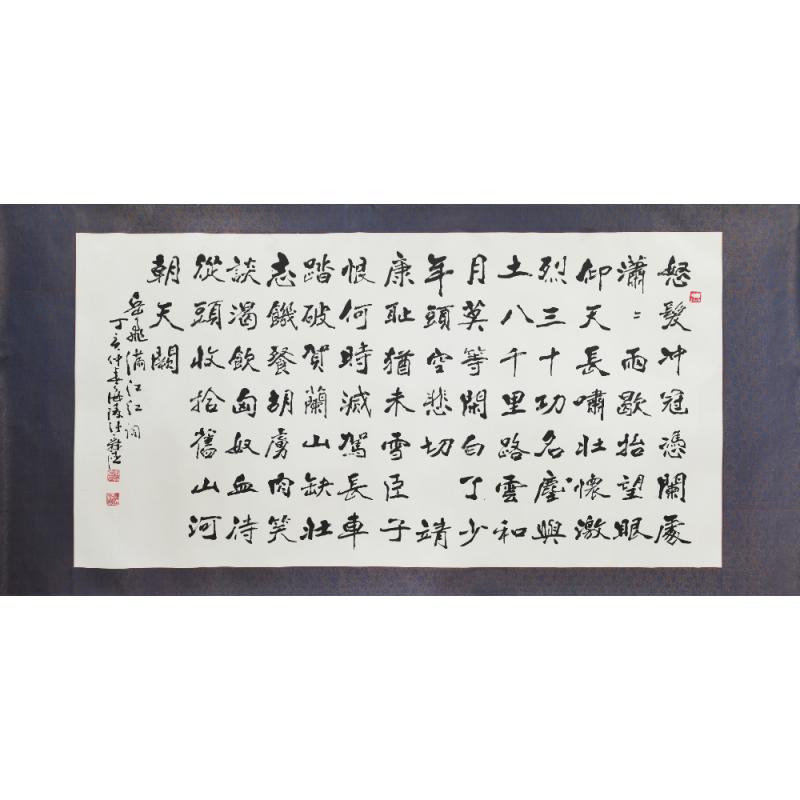 怒髮冲冠憑闌處
瀟〻雨歇抬望眼
仰天長嘯壯懷激
烈三十功名塵與
土八千里路雲和
月莫等閑白了少
年頭空悲切 靖
康耻猶未雪臣子
恨何時滅駕長車
踏破賀蘭山缺壯
志饑餐胡虜肉笑
談渴飲匈奴血待
從頭收拾舊山河
朝天闕
岳飛滿江江詞
丁亥仲春海陵